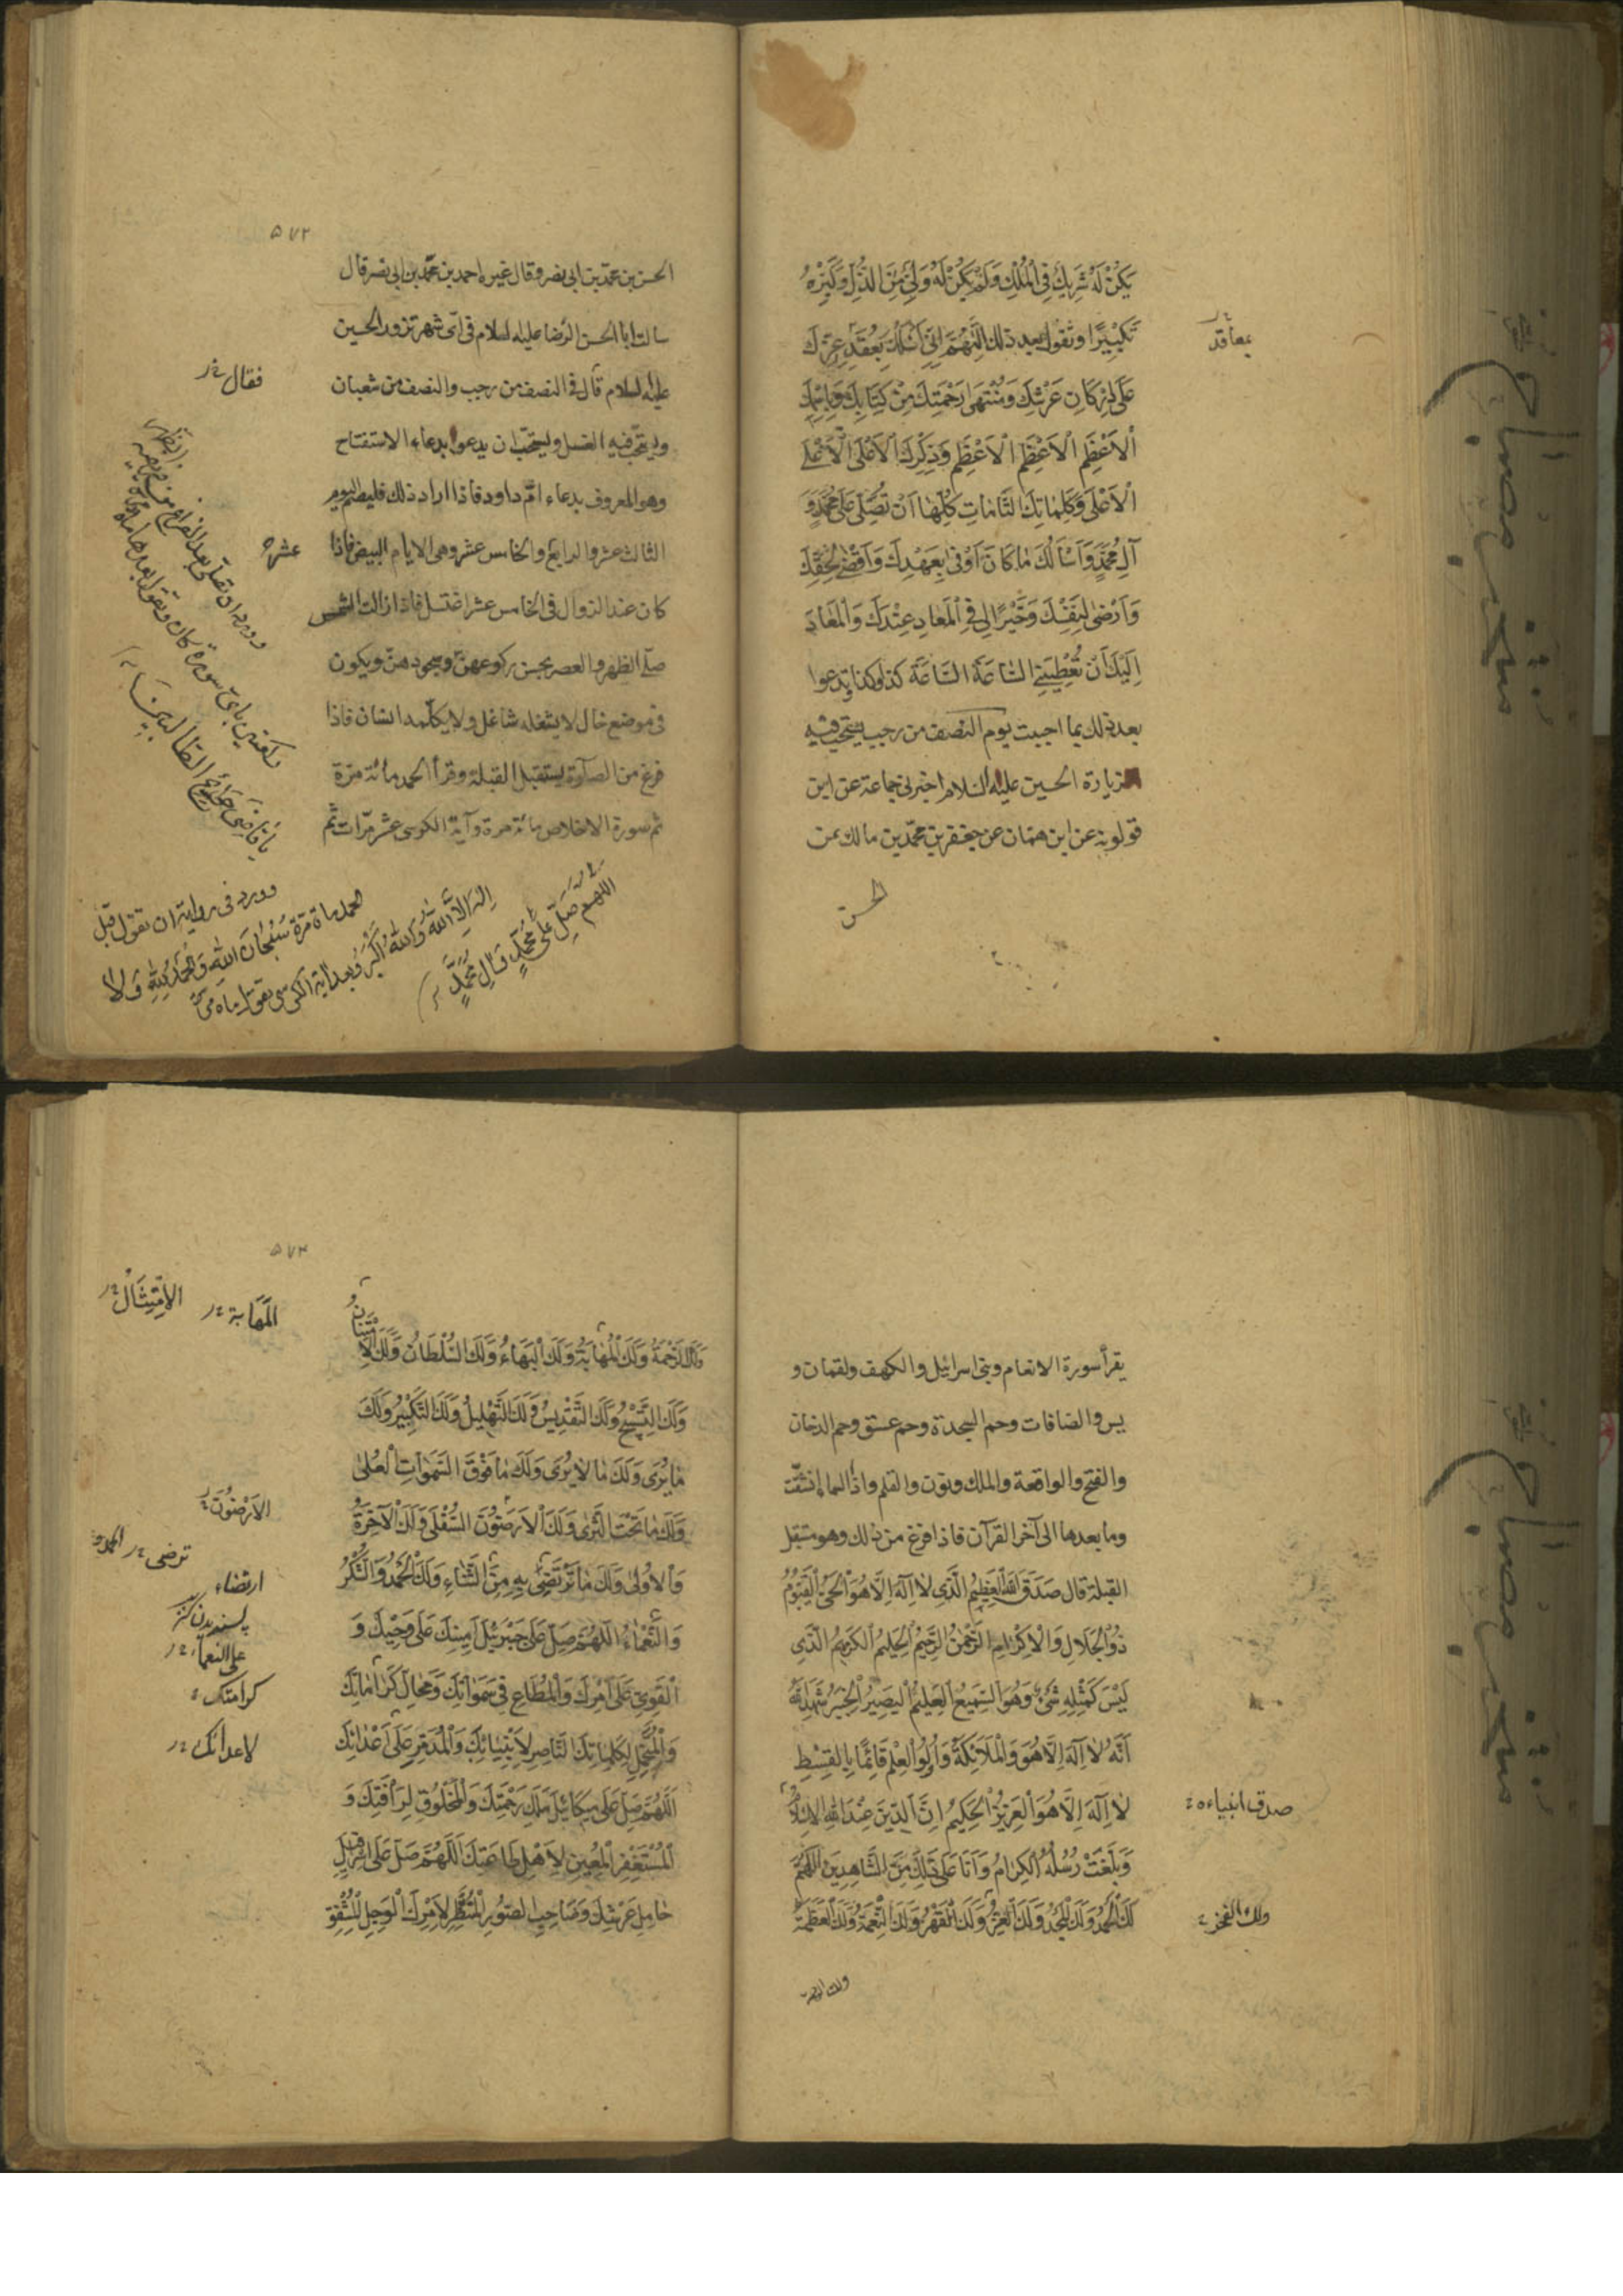 يَكُنْ لَهُ شَرِيكٌ فِي الْمُلْكِ وَلَمْ يَكُنْ لَهُ وَلِيٌّ مِنَ الذُّلِّ وَكَبِّرْهُ
تَكْبِيرًا وتقول بعد ذلك اللَّهُمَّ اِنِّي اَسْئَلُكَ بِعَقَدِ عِزِّكَ
بمعاقد
عَلَى اَرْكَانِ عَرْشِكَ وَمُنْتَهَى رَحْمَتِكَ مِنْ كِتَابِكَ وَبِاسْمِكَ
الْاَعْظَمِ الْاَعْظَمِ الْاَعْظَمِ وَذِكْرِكَ الْاَعْلَى الْاَعْلَى
الْاَعْلَى وَكَلِمَاتِكَ التَّامَّاتِ كُلِّهَا اَنْ تُصَلِّيَ عَلَى مُحَمَّدٍ وَ
آلِ مُحَمَّدٍ وَاَسْاَلُكَ مَا كَانَ اَوْفَى بِعَهْدِكَ وَاَقْضَى لِحَقِّكَ
وَاَرْضَى لِنَفْسِكَ وَخَيْرًا لِي فِي الْمَعَادِ عِنْدَكَ وَالْمَعَادِ
اِلَيْكَ اَنْ تُعْطِيَنِي السَّاعَةَ السَّاعَةَ كذا وكذا وتدعوا
بعد ذلك بما احببت يوم النصف من رجب يستحب فيه
زيارة الحسين عليه السلام اخبرني جماعة عن ابن
قولويه عن ابن همام عن جعفر بن محمد بن مالك عن
الحسن
٥٧٢
الحسن بن محمد بن ابي نصر وقال غيره احمد بن محمد بن ابي نصر قال
سالت ابا الحسن الرضا عليه السلام في اى شهر نزور الحسين
عليه السلام قال في النصف من رجب والنصف من شعبان
فقال
ويستحب فيه الغسل ويستحب ان يدعوا بدعاء الاستفتاح
وهو المعروف بدعاء ام داود فاذا اراد ذلك فليصم اليوم
الثالث عشر والرابع والخامس عشر وهي الايام البيض فاذا
عشر
كان عند الزوال في الخامس عشر اغتسل فاذا زالت الشمس
صلى الظهر والعصر يحسن ركوعهن وسجودهن ويكون
في موضع خال لا يشغله شاغل ولا يكلمه انسان فاذا
فرغ من الصلوة يستقبل القبلة وقرأ الحمد مائة مرة
ثم سورة الاخلاص مائة مرة وآية الكرسي عشر مرات ثم
يَا قَاضِيَ حَوَائِجِ الطَّالِبِينَ
وورد في رواية ان تقول قبل
الحمد ماة مرة سُبْحَانَ اللهِ وَالْحَمْدُ لِلّهِ وَلَا
اِلهَ اِلَّا اللهُ وَاللهُ اَكْبَرُ وبعد اية الكرسي تقول ماة مرة
اللهم صَلِّ عَلَى مُحَمَّدٍ وَآلِ مُحَمَّدٍ
يقرأ سورة الانعام وبنى اسرائيل والكهف ولقمان و
يس والصافات وحم السجدة وحم عسق وحم الدخان
والفتح والواقعة والملك ونون والقلم واذا السماء انشقت
وما بعدها الى آخر القرآن فاذا فرغ من ذلك وهو مستقبل
القبلة قال صَدَقَ اللهُ الْعَظِيمُ الَّذِي لَا اِلَهَ اِلَّا هُوَ الْحَيُّ الْقَيُّومُ
ذُو الْجَلَالِ وَالْاِكْرَامِ الرَّحْمنُ الرَّحِيمُ الْحَلِيمُ الْكَرِيمُ الَّذِي
لَيْسَ كَمِثْلِهِ شَيْءٌ وَهُوَ السَّمِيعُ الْعَلِيمُ الْبَصِيرُ الْخَبِيرُ شَهِدَ اللهُ
اَنَّهُ لَا اِلَهَ اِلَّا هُوَ وَالْمَلَائِكَةُ وَاُولُوا الْعِلْمِ قَائِمًا بِالْقِسْطِ
لَا اِلَهَ اِلَّا هُوَ الْعَزِيزُ الْحَكِيمُ اِنَّ الدِّينَ عِنْدَ اللهِ الْاِسْلَامُ
صدق انبياءه
وَبَلَّغَتْ رُسُلُهُ الْكِرَامُ وَاَنَا عَلَى ذَلِكَ مِنَ الشَّاهِدِينَ اللَّهُمَّ
لَكَ الْحَمْدُ وَلَكَ الْمَجْدُ وَلَكَ الْعِزُّ وَلَكَ الْقَهْرُ وَلَكَ النِّعْمَةُ وَلَكَ الْعَظَمَةُ
ولك الفخر
ولك الرحمة
٥٧٣
وَلَكَ الرَّحْمَةُ وَلَكَ الْمَهَابَةُ وَلَكَ الْبَهَاءُ وَلَكَ السُّلْطَانُ وَلَكَ الْاِمْتِنَانُ
المهابة
الامتثال
وَلَكَ التَّسْبِيحُ وَلَكَ التَّقْدِيسُ وَلَكَ التَّهْلِيلُ وَلَكَ التَّكْبِيرُ وَلَكَ
مَا يُرَى وَلَكَ مَا لَا يُرَى وَلَكَ مَا فَوْقَ السَّمَوَاتِ الْعُلَى
وَلَكَ مَا تَحْتَ الثَّرَى وَلَكَ الْاَرَضُونَ السُّفْلَى وَلَكَ الْآخِرَةُ
الارضون
وَالْاُولَى وَلَكَ مَا تَرْتَضِي بِهِ مِنَ الثَّنَاءِ وَلَكَ الْحَمْدُ وَالشُّكْرُ
ترضى
الحمد و
ارتضاء
پسنديدن كنز
وَالنَّعْمَاءُ اللَّهُمَّ صَلِّ عَلَى جَبْرَئِيلَ اَمِينِكَ عَلَى وَحْيِكَ وَ
على النعماء
الْقَوِيِّ عَلَى اَمْرِكَ وَالْمُطَاعِ فِي سَمَوَاتِكَ وَمَحَالِّ كَرَامَاتِكَ
كرامتك
وَالْمُتَحَمِّلِ لِكَلِمَاتِكَ النَّاصِرِ لِاَنْبِيَائِكَ وَالْمُدَمِّرِ عَلَى اَعْدَائِكَ
لاعدائك
اللَّهُمَّ صَلِّ عَلَى مِيكَائِيلَ مَلَكِ رَحْمَتِكَ وَالْمَخْلُوقِ لِرَاْفَتِكَ وَ
الْمُسْتَغْفِرِ الْمُعِينِ لِاَهْلِ طَاعَتِكَ اللَّهُمَّ صَلِّ عَلَى اِسْرَافِيلَ
حَامِلِ عَرْشِكَ وَصَاحِبِ الصُّورِ الْمُنْتَظِرِ لِاَمْرِكَ الْوَجِلِ الْمُشْفِقِ